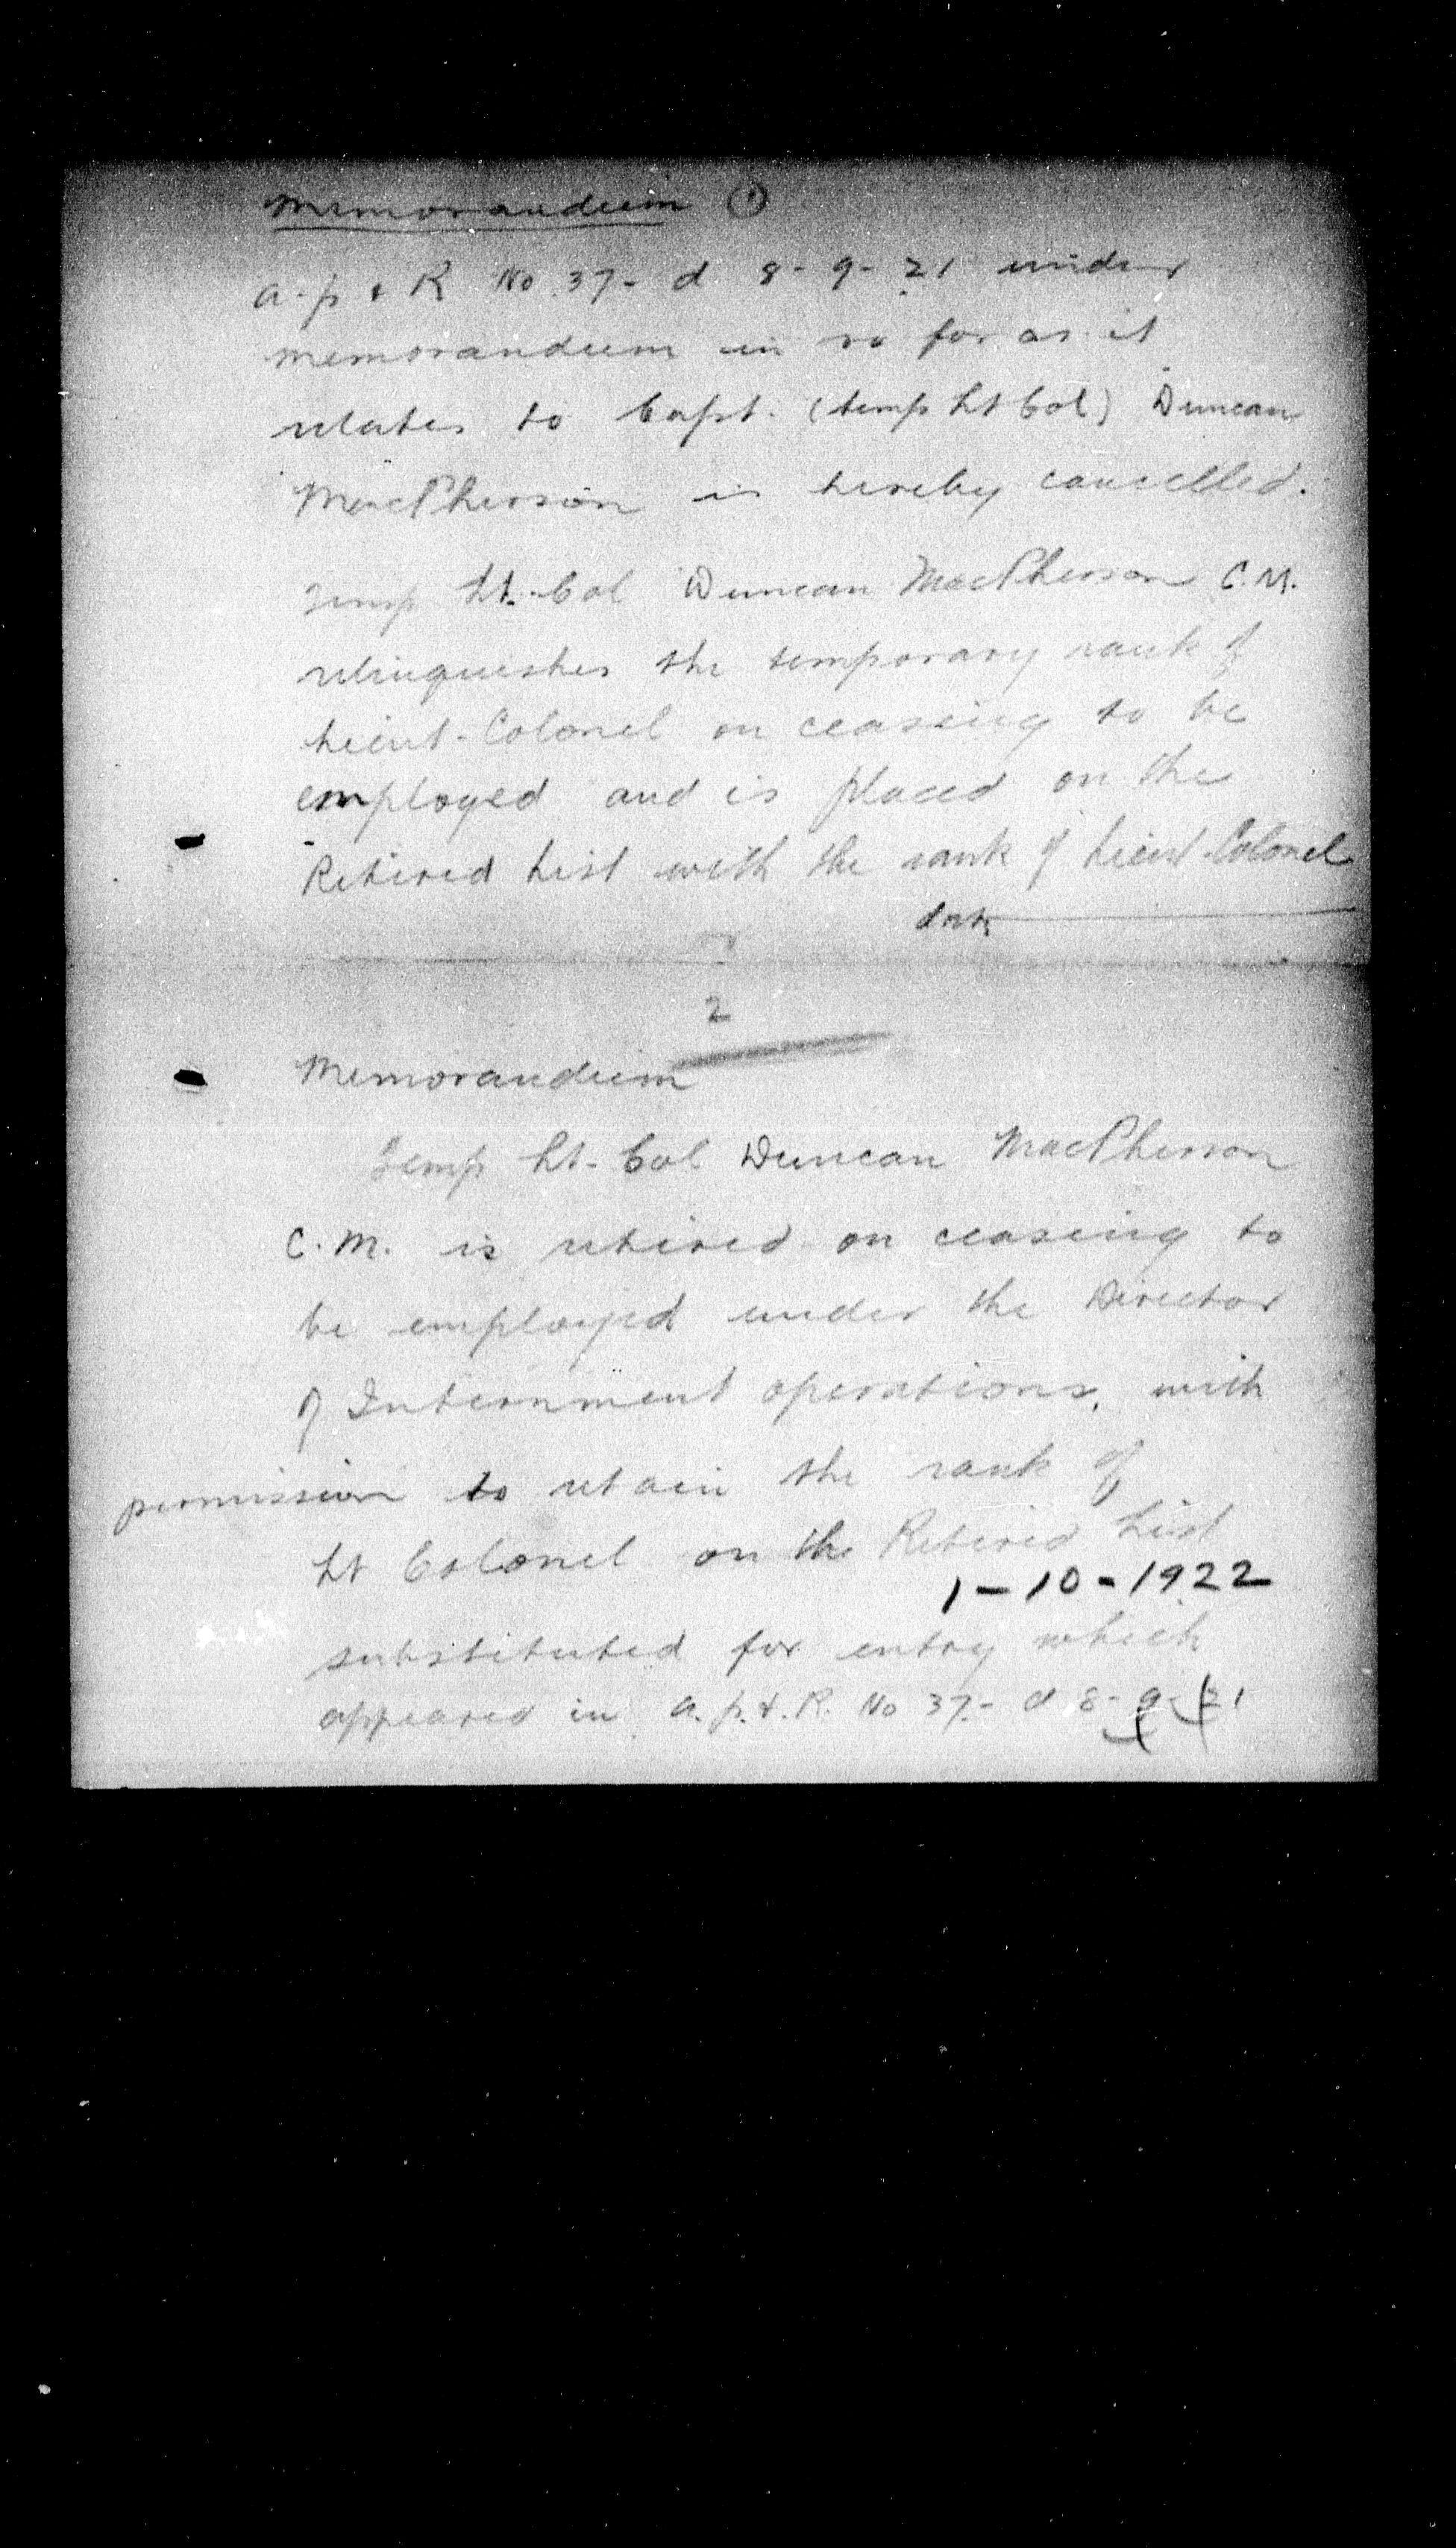 Memorandum ①
a. p & R No 37- d 8-9-21 under
memorandum in so far as it
relates to Capt. (temp Lt Col) Duncan
MacPherson is hereby cancelled.
Temp Lt.-Col Duncan MacPherson C.M.
relinquishes the temporary rank of
Lieut-Colonel on ceasing to be
employed and is placed on the
Retired List with the rank of Lieut-Colonel
date
2
Memorandum
Temp Lt-Col Duncan MacPherson
C.M. is retired on ceasing to
be employed under the Director
of Internment operations, with
permission to retain the rank of
Lt Colonel on the Retired List
1-10-1922
substituted for entry which
appeared in a. p. & R. No 37- d 8-9-21